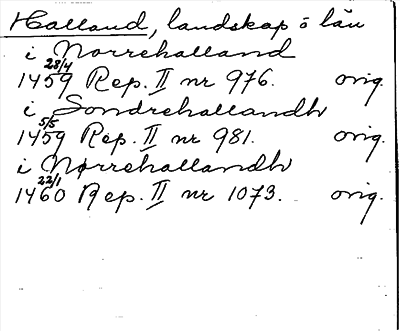 Halland, landskap o län
i Norrehalland
1459 28/4 Rep. II nr 976. orig.
i Sondrehallandh
1459 5/5 Rep. II nr 981. orig.
i Nørrehallandh
1460 22/1 Rep. II nr 1073. orig.